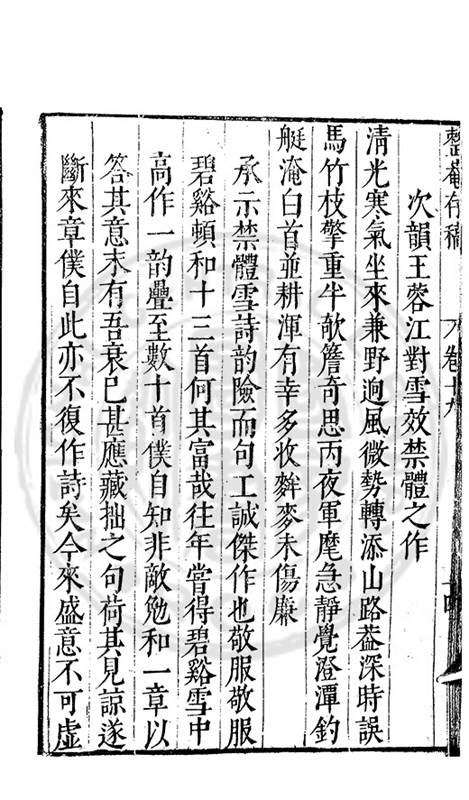 整菴存稿 卷十九
次韻王蓉江對雪效禁體之作
清光寒氣坐來兼野逈風微勢轉添山路葢深時誤
馬竹枝擎重半欹簷奇思丙夜軍麾急靜覺澄潭釣
艇淹白首並耕渾有幸多收麰麥未傷廉
承示禁體雪詩韵險而句工誠傑作也敬服敬服
碧谿頓和十三首何其富哉往年嘗得碧谿雪中
高作一韵疊至數十首僕自知非敵勉和一章以
答其意末有吾衰已甚應藏拙之句荷其見諒遂
斷來章僕自此亦不復作詩矣今來盛意不可虛